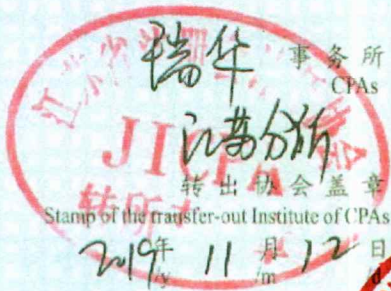 瑞华 事务所
CPAs
江苏分所
JICPA
转所
转出协会盖章
Stamp of the transfer-out Institute of CPAs
2019年 11月 12日
/y /m /d